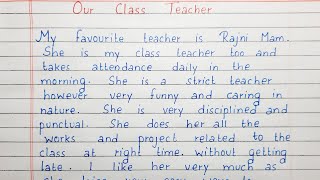 Our Class Teacher
My favourite teacher is Rajni Mam.
She is my class teacher too and
takes attendance daily in the
morning. She is a strict teacher
however very funny and caring in
nature. She is very disciplined and
punctual. She does her all the
works and project related to the
class at right time without getting
late. I like her very much as